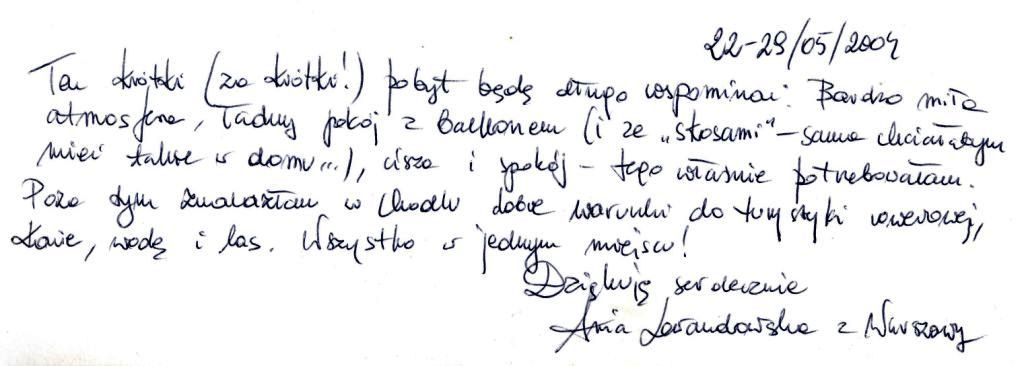 22-29/05/2004
Ten krótki (za krótki!) pobyt będę długo wspominać. Bardzo miła
atmosfera, ładny pokój z balkonem (i ze „stosami" – sama chciałabym
mieć takie w domu...), cisza i spokój – tego właśnie potrzebowałam.
Poza tym znalazłam w Chodlu dobre warunki do turystyki rowerowej,
konie, wodę i las. Wszystko w jednym miejscu!
Dziękuję serdecznie
Ania z Warszawy